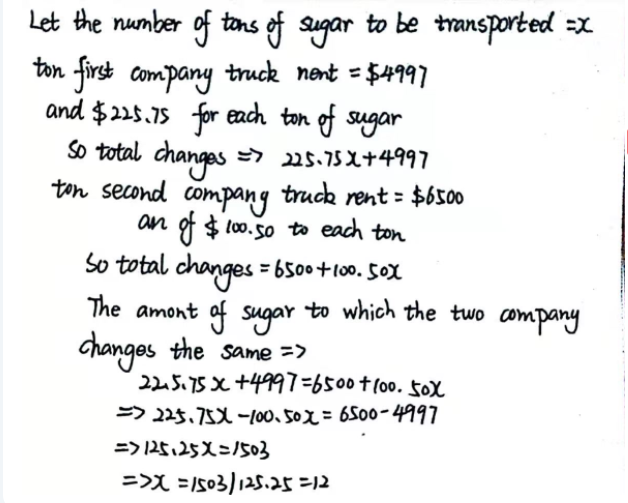 Let the number of tons of sugar to be transported =x
ton first company truck nent = $4997
and $225.75 for each ton of sugar
So total changes => 225.75x+4997
ton second company truck rent = $6500
an of $100.50 to each ton
So total changes = 6500+100.50x
The amont of sugar to which the two company
changes the same =>
225.75x+4997=6500+100.50x
=> 225.75x-100.50x = 6500-4997
=> 125.25x=1503
=>x =1503/125.25 =12